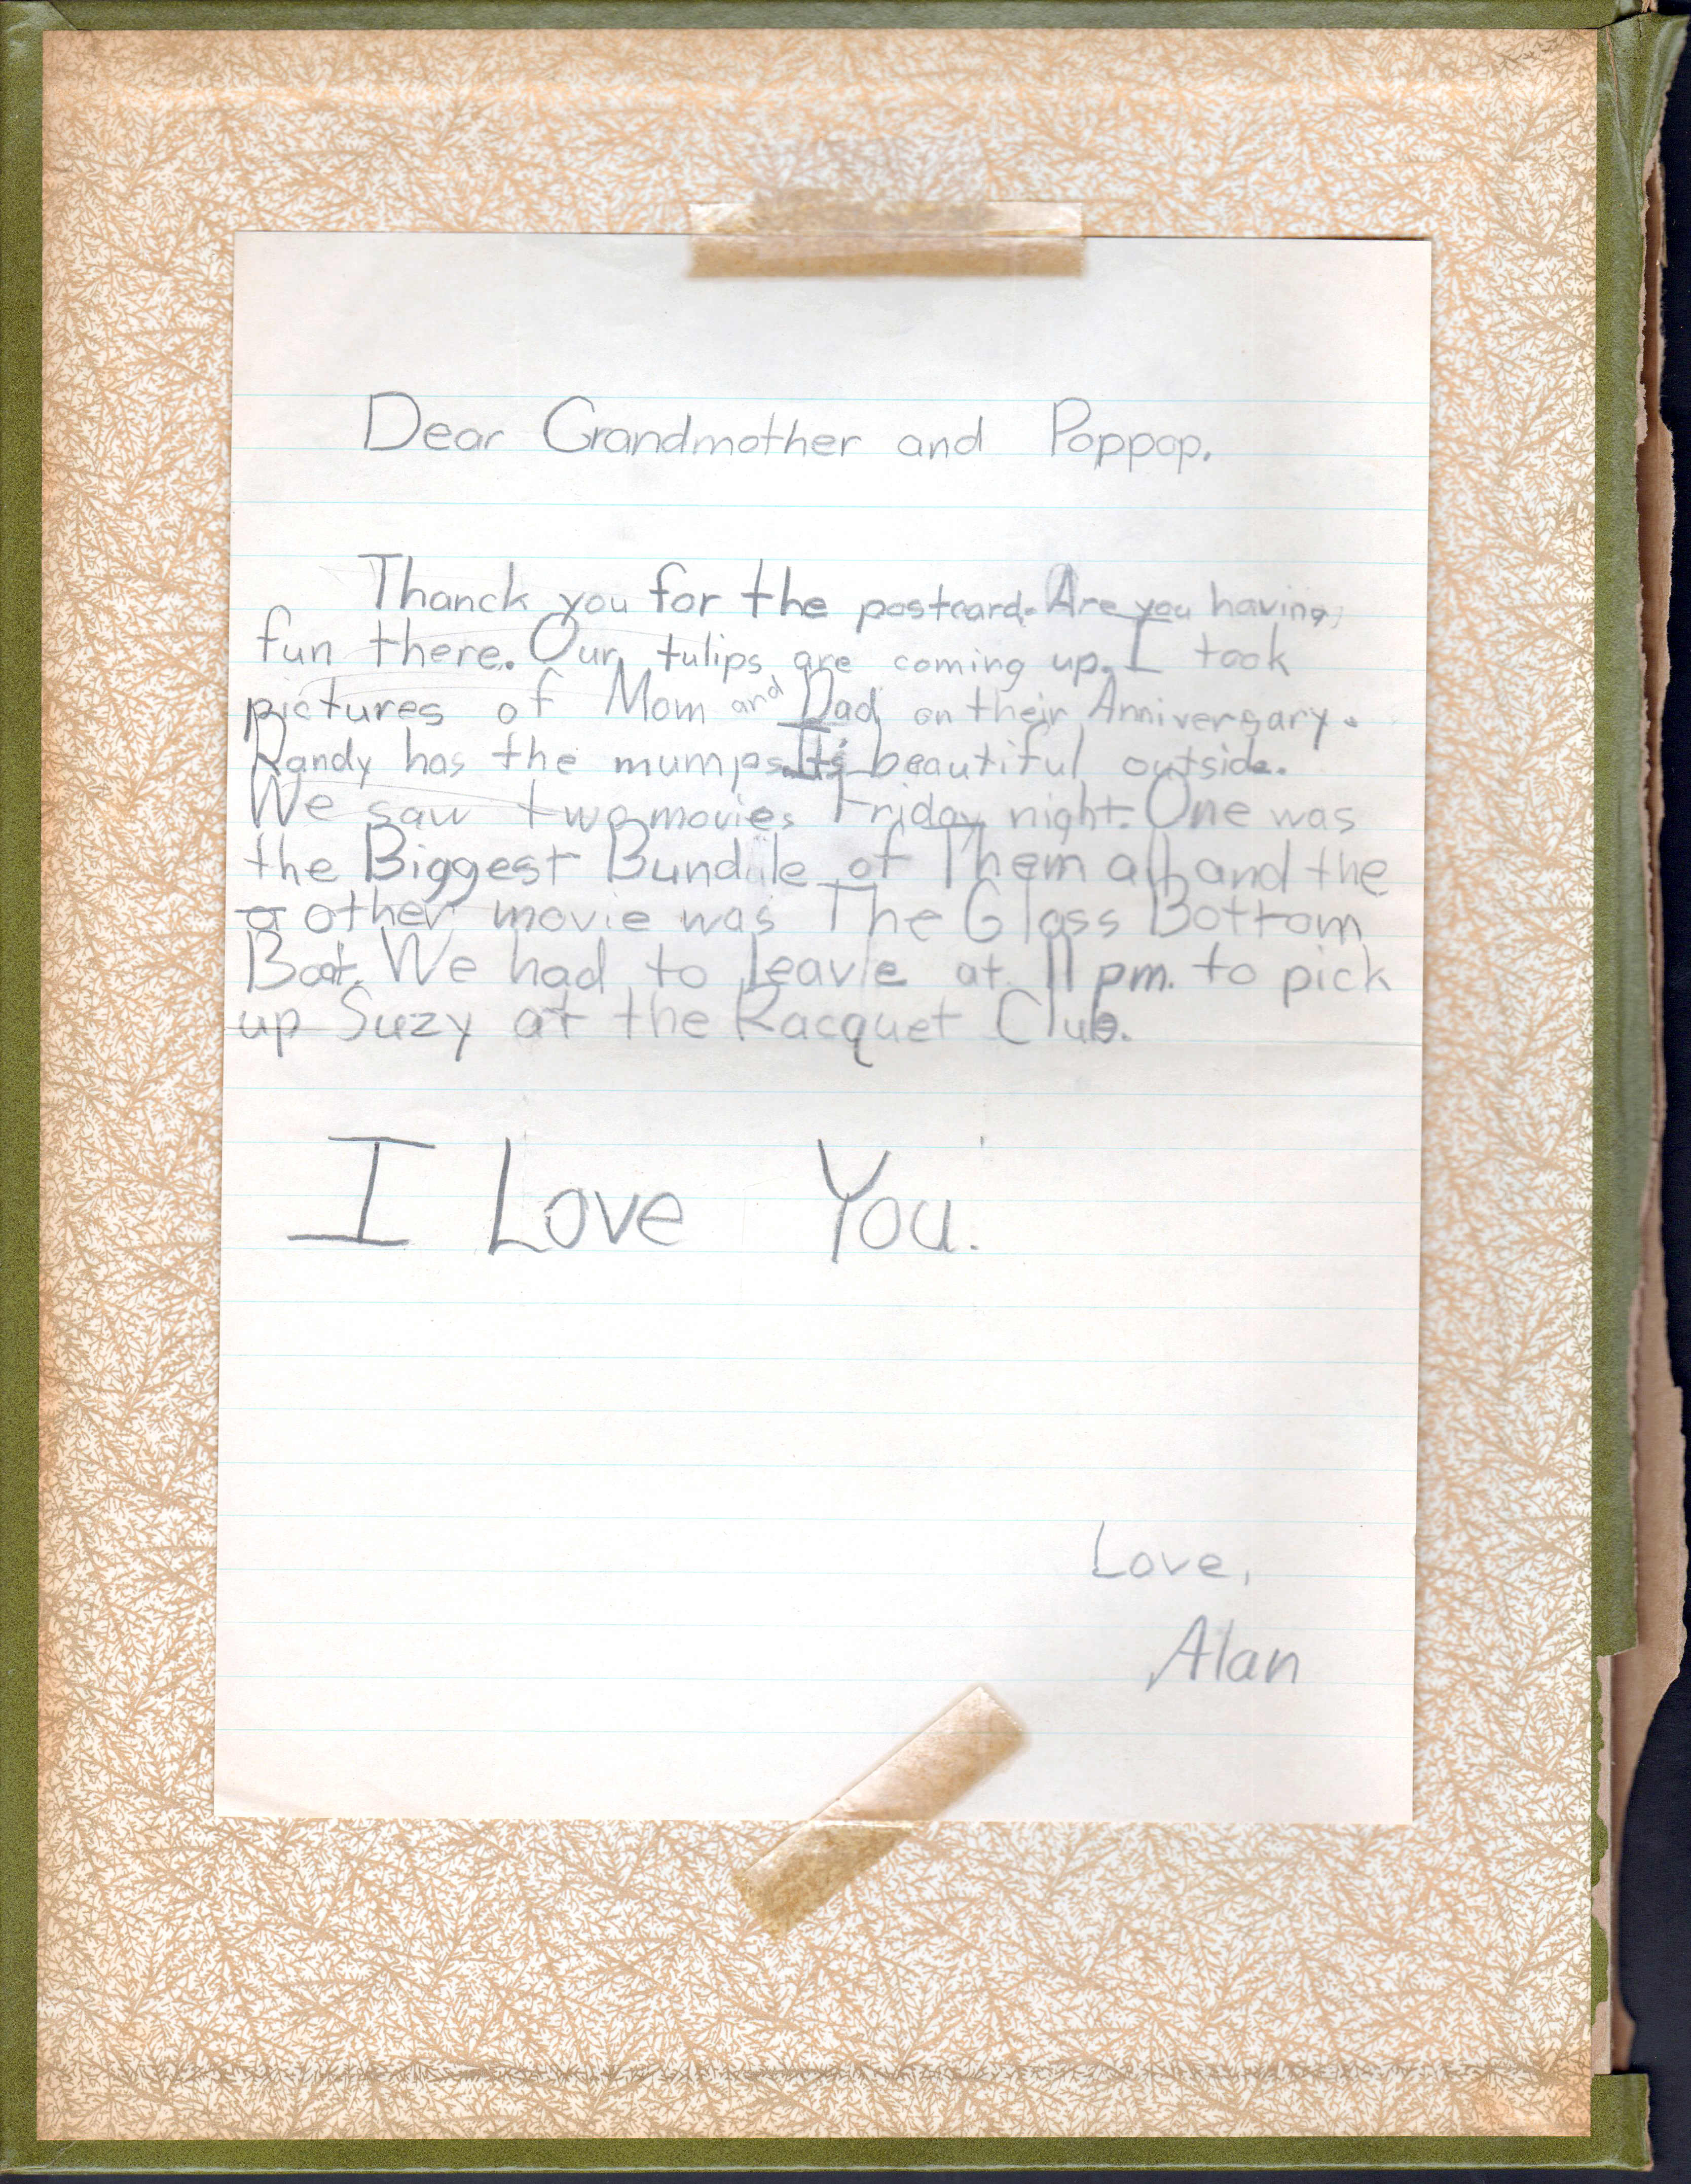 Dear Grandmother and Poppop.
Thanck you for the postcard. Are you having
fun there. Our tulips are coming up. I took
pictures of Mom and Dad on their Anniversary.
Randy has the mumps. It's beautiful outside.
We saw two movies Friday night. One was
the Biggest Bundle of Them all and the
other movie was The Glass Bottom
Boat. We had to Leave at 11 pm. to pick
up Suzy at the Racquet Club.
I Love You.
Love,
Alan